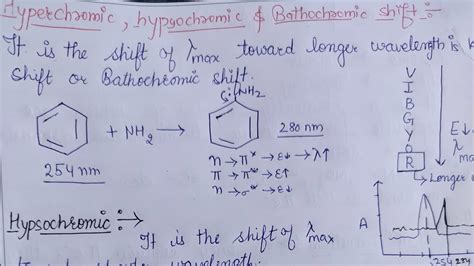 Hyperchromic, hypsochromic & Bathochromic shift :-
It is the shift of λmax toward longer wavelength is k
shift or Bathochromic shift.
:NH2
+ NH2 →
254 nm
280 nm
n → π* → E↓ → λ↑
π → π* → E↑
n → σ* → E↓
V
I
B
G
Y
O
R
E↓
λmax
→ Longer
Hypsochromic :→
It is the shift of λmax
A
254
wavelength